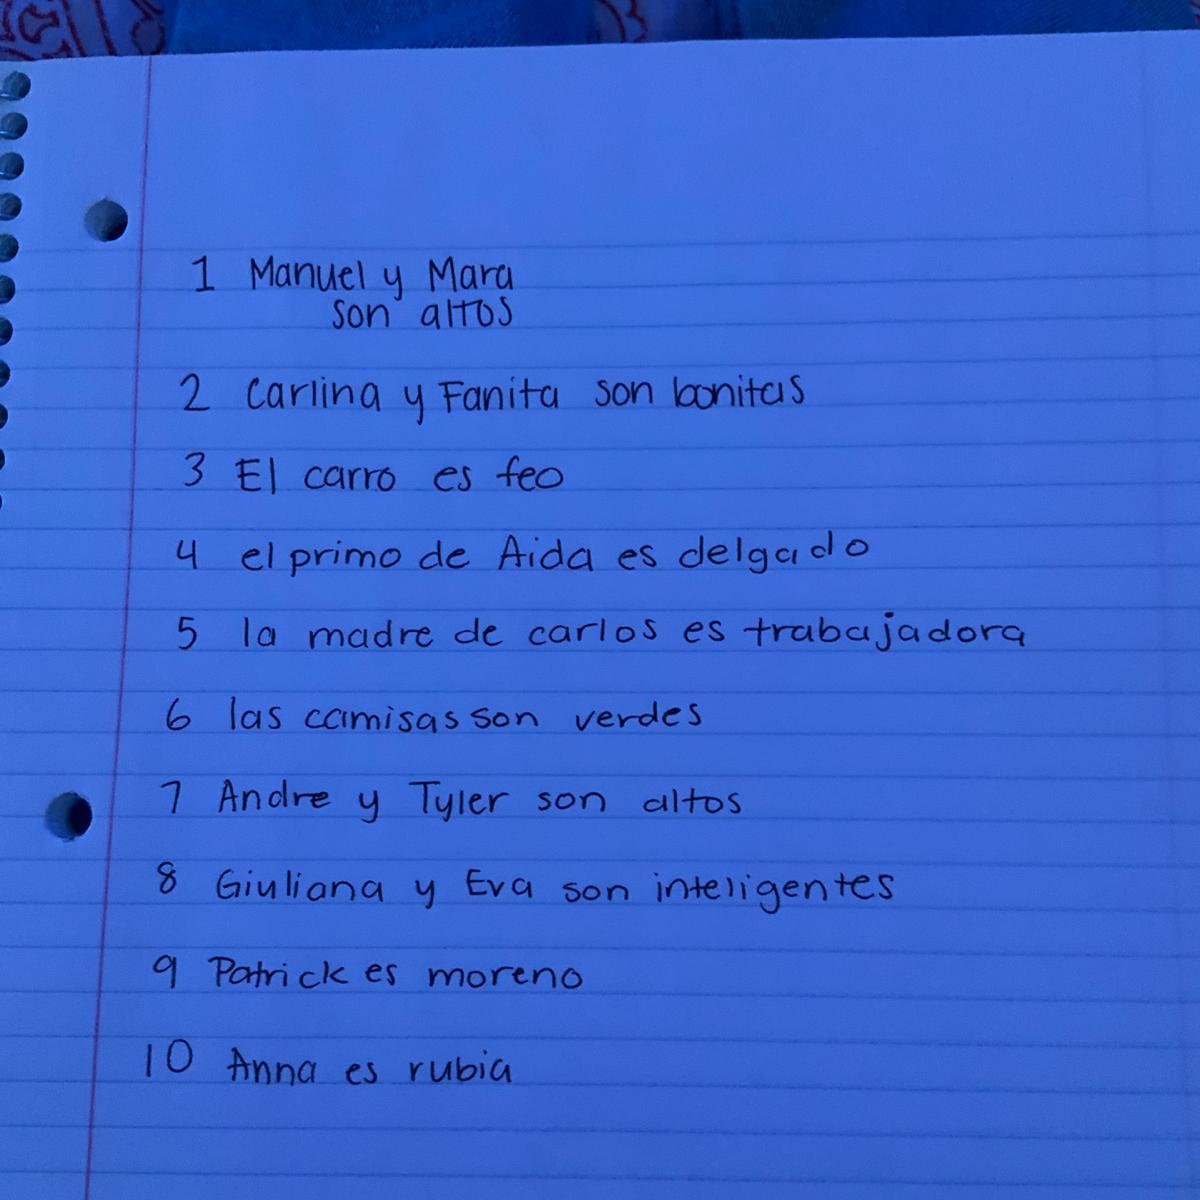 1 Manuel y Mara
son altos
2 Carlina y Fanita son bonitas
3 El carro es feo
4 el primo de Aida es delgado
5 la madre de carlos es trabajadora
6 las camisas son verdes
7 Andre y Tyler son altos
8 Giuliana y Eva son inteligentes
9 Patrick es moreno
10 Anna es rubia